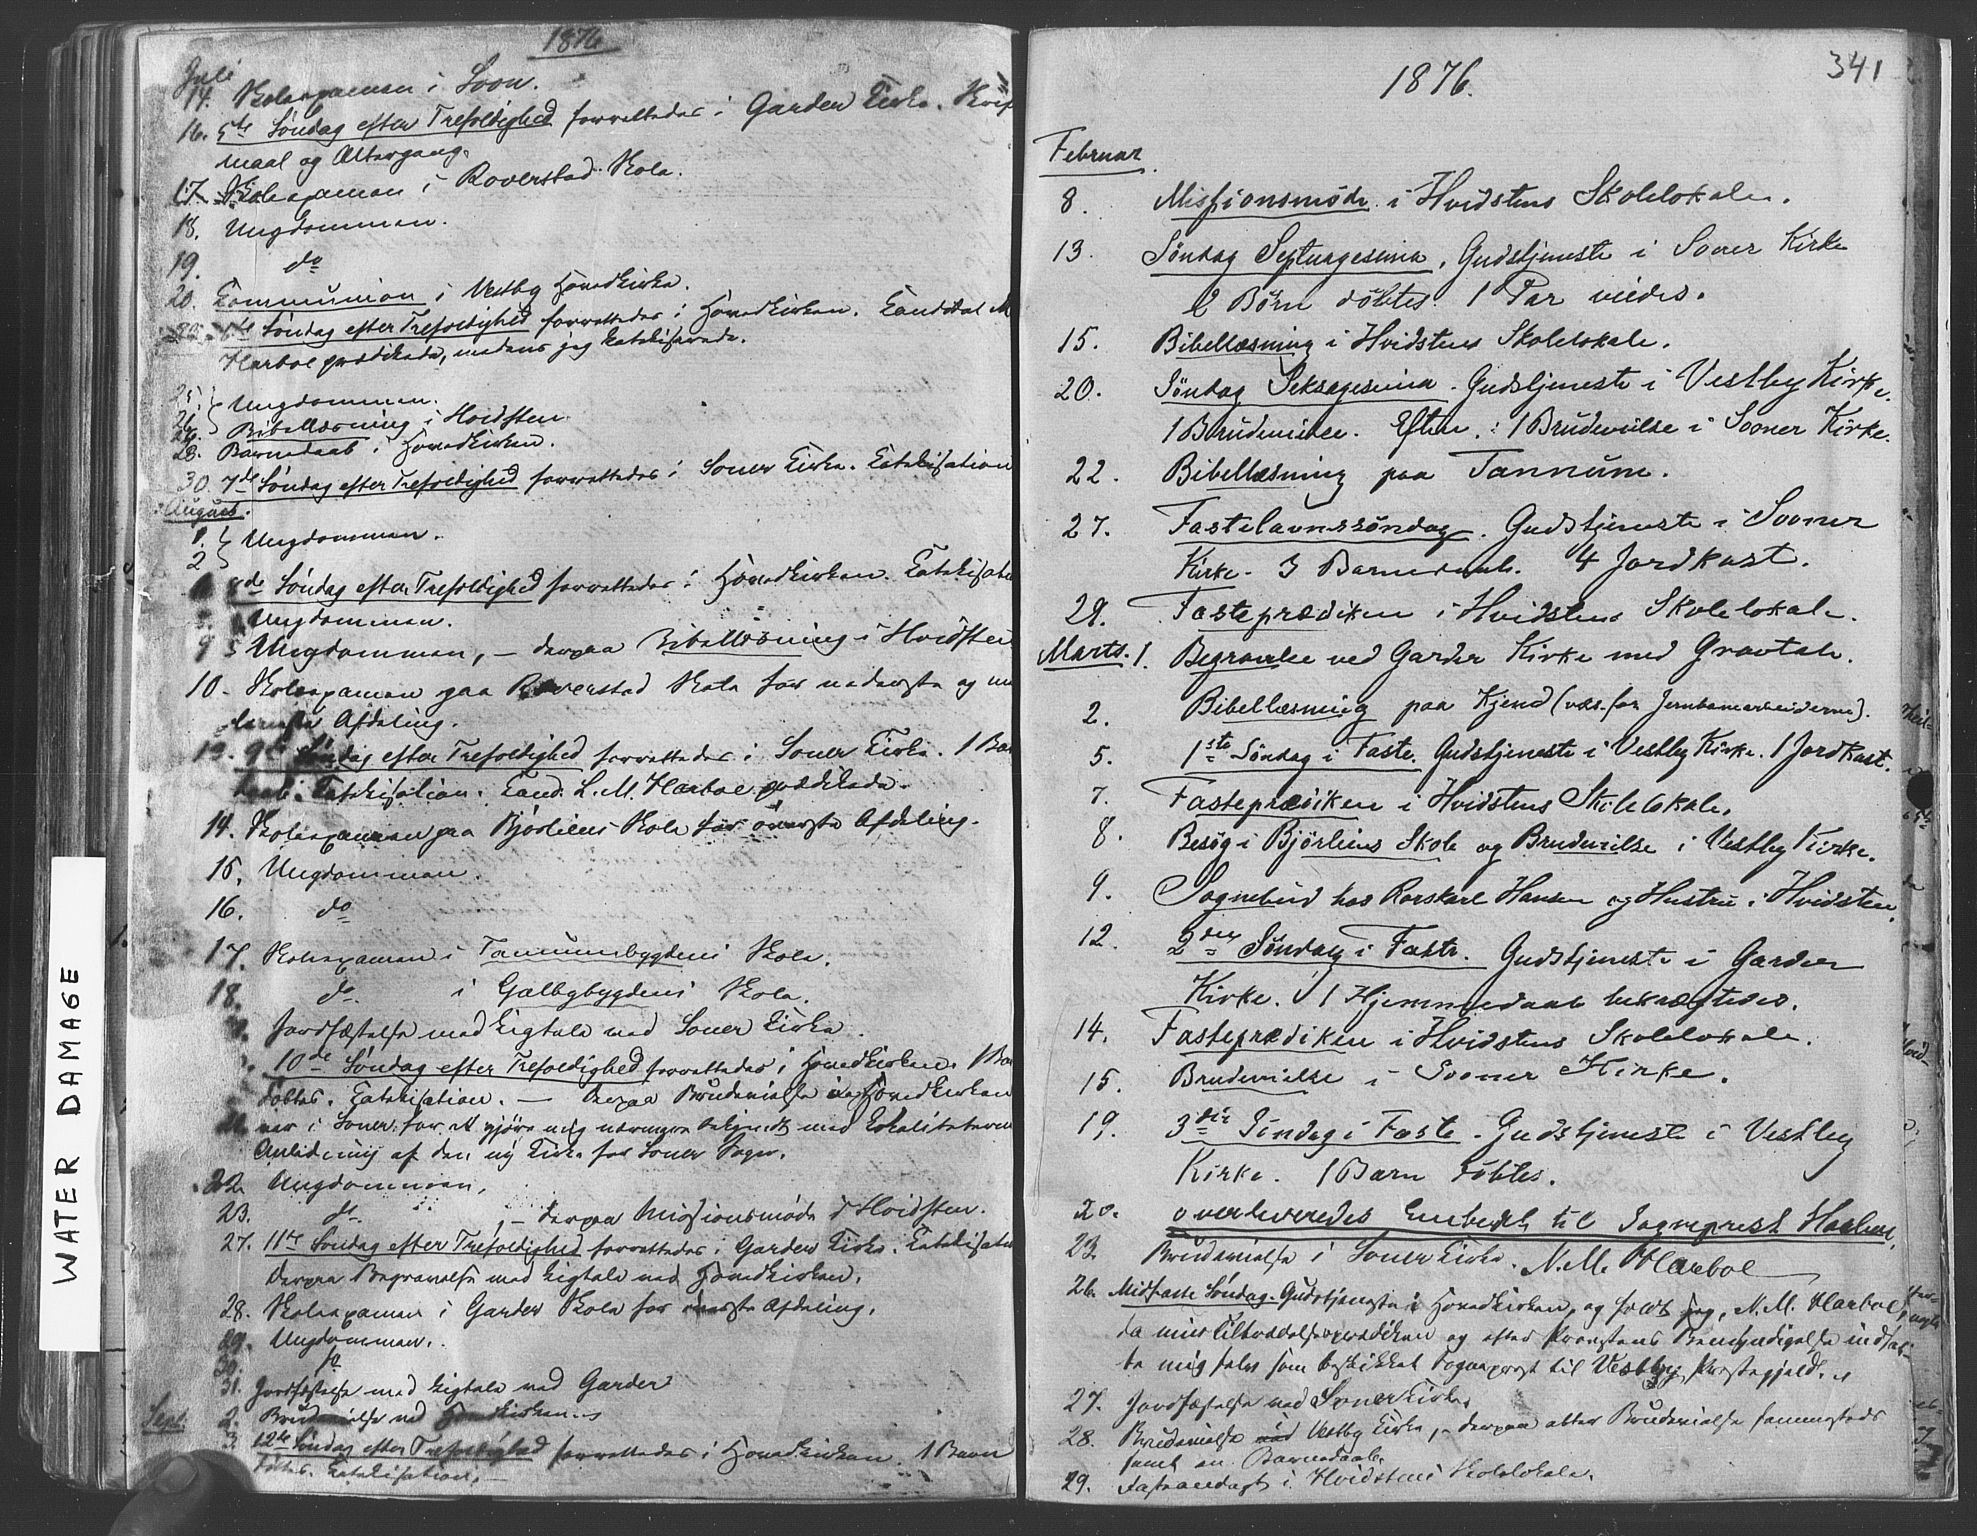 1876
Juli
14. Skoleexamen i Soon.
16. 5te Søndag efter Trefoldighed forrettedes i Garder Kirke. Skrifte
maal og Altergang.
17. Skoleexamen i Roverstad Skole.
18. Ungdommen.
19. do
20. Communion i Vestby Hovedkirke.
6te Søndag efter Trefoldighed forrettedes i Hovedkirken. Candidat M
Harboe prædikede, medens jeg katekiserede.
25.
26. Ungdommen.
Bibellæsning i Hvidsten
28. Barnedaab i Hovedkirken.
30. 7de Søndag efter Trefoldighed forrettedes i Soner Kirke. Katekisation
August.
1.
2 Ungdommen.
8de Søndag efter Trefoldighed forrettedes i Hovedkirken. Katekisation
Ungdommen.
9 Ungdommen, — derpaa Bibellæsning i Hvidsten
10. Skoleexamen paa Roverstad Skole for nederste og me
lemste Afdeling.
13. 9de Søndag efter Trefoldighed forrettedes i Soner Kirke. 1 Bar
daab. Katekisation. Cand. L. M. Harboe prædikede.
14. Skoleexamen paa Bjørliens Skole for øverste Afdeling.
15. Ungdommen.
16. do
17. Skoleexamen i Tannumbygdens Skole.
18. do i Galbybygdens Skole.
Jordfæstelse med Ligtale ved Soner Kirke.
10de Søndag efter Trefoldighed forrettedes i Hovedkirken. 1 Bar
døbtes. Katekisation. — Derpaa Brudevielse i Hovedkirken
21. var i Soner for at gjøre mig nærmere bekjendt med Lokaliteterne
Anledning af den ny Kirke for Soner Sogn.
22. Ungdommen,
23. do, — derpaa Missionsmøde i Hvidsten.
27. 11te Søndag efter Trefoldighed forrettedes i Garder Kirke. Katekisatio
Derpaa Begravelse med Ligtale ved Hovedkirken.
28. Skoleexamen i Garder Skole for øverste Afdeling.
29. Ungdommen.
30. do
31. Jordfæstelse med Ligtale ved Garder
Sept. 2. Brudevielse ved Hovedkirken.
3. 12te Søndag efter Trefoldighed forrettedes i Hovedkirken. 1 Barn
døbtes. Katekisation. —
WATER DAMAGE
341
1876.
Februar.
8. Missionsmøde i Hvidstens Skolelokale.
13. Søndag Septuagesima. Gudstjeneste i Sooner Kirke
2 Børn døbtes. 1 Par viedes.
15. Bibellæsning i Hvidstens Skolelokale.
20. Søndag Seksagesima. Gudstjeneste i Vestby Kirke.
1 Brudevielse. Efterm.: 1 Brudevielse i Sooner Kirke.
22. Bibellæsning paa Tannum.
27. Fastelavnssøndag. Gudstjeneste i Sooner
Kirke. 3 Barnedaab. 4 Jordkast.
29. Fasteprædiken i Hvidstens Skolelokale.
Marts. 1. Begravelse ved Garder Kirke med Gravtale.
2. Bibellæsning paa Kjend (væs. for Jernbanearbeiderne).
5. 1ste Søndag i Faste. Gudstjeneste i Vestby Kirke. 1 Jordkast.
7. Fasteprædiken i Hvidstens Skolelokale.
8. Besøg i Bjørliens Skole og Brudevielse i Vestby Kirke.
9. Sognebud hos Rorskarl Hansen og Hustru i Hvidsten.
12. 2den Søndag i Faste. Gudstjeneste i Garder
Kirke. 1 Hjemmedaab bekræftedes.
14. Fasteprædiken i Hvidstens Skolelokale.
15. Brudevielse i Sooner Kirke.
19. 3die Søndag i Faste. Gudstjeneste i Vestby
Kirke. 1 Barn døbtes.
20. overleveredes Embedet til Sogneprest Harboe.
23. Brudevielse i Soner Kirke. N. M. Harboe
26. Midfaste Søndag. Gudstjeneste i Hovedkirken, og holdt jeg, N. M. Harboe,
da min Tiltrædelsesprædiken og efter Provstens Bemyndigelse indsat-
te mig selv som beskikket Sogneprest til Vestby Præstegjeld.
27. Jordfæstelse ved Soner Kirke.
28. Brudevielse ved Vestby Kirke, — derpaa atter Brudevielse sammesteds
samt en Barnedaab.
29. Fasteandagt i Hvidstens Skolelokale.